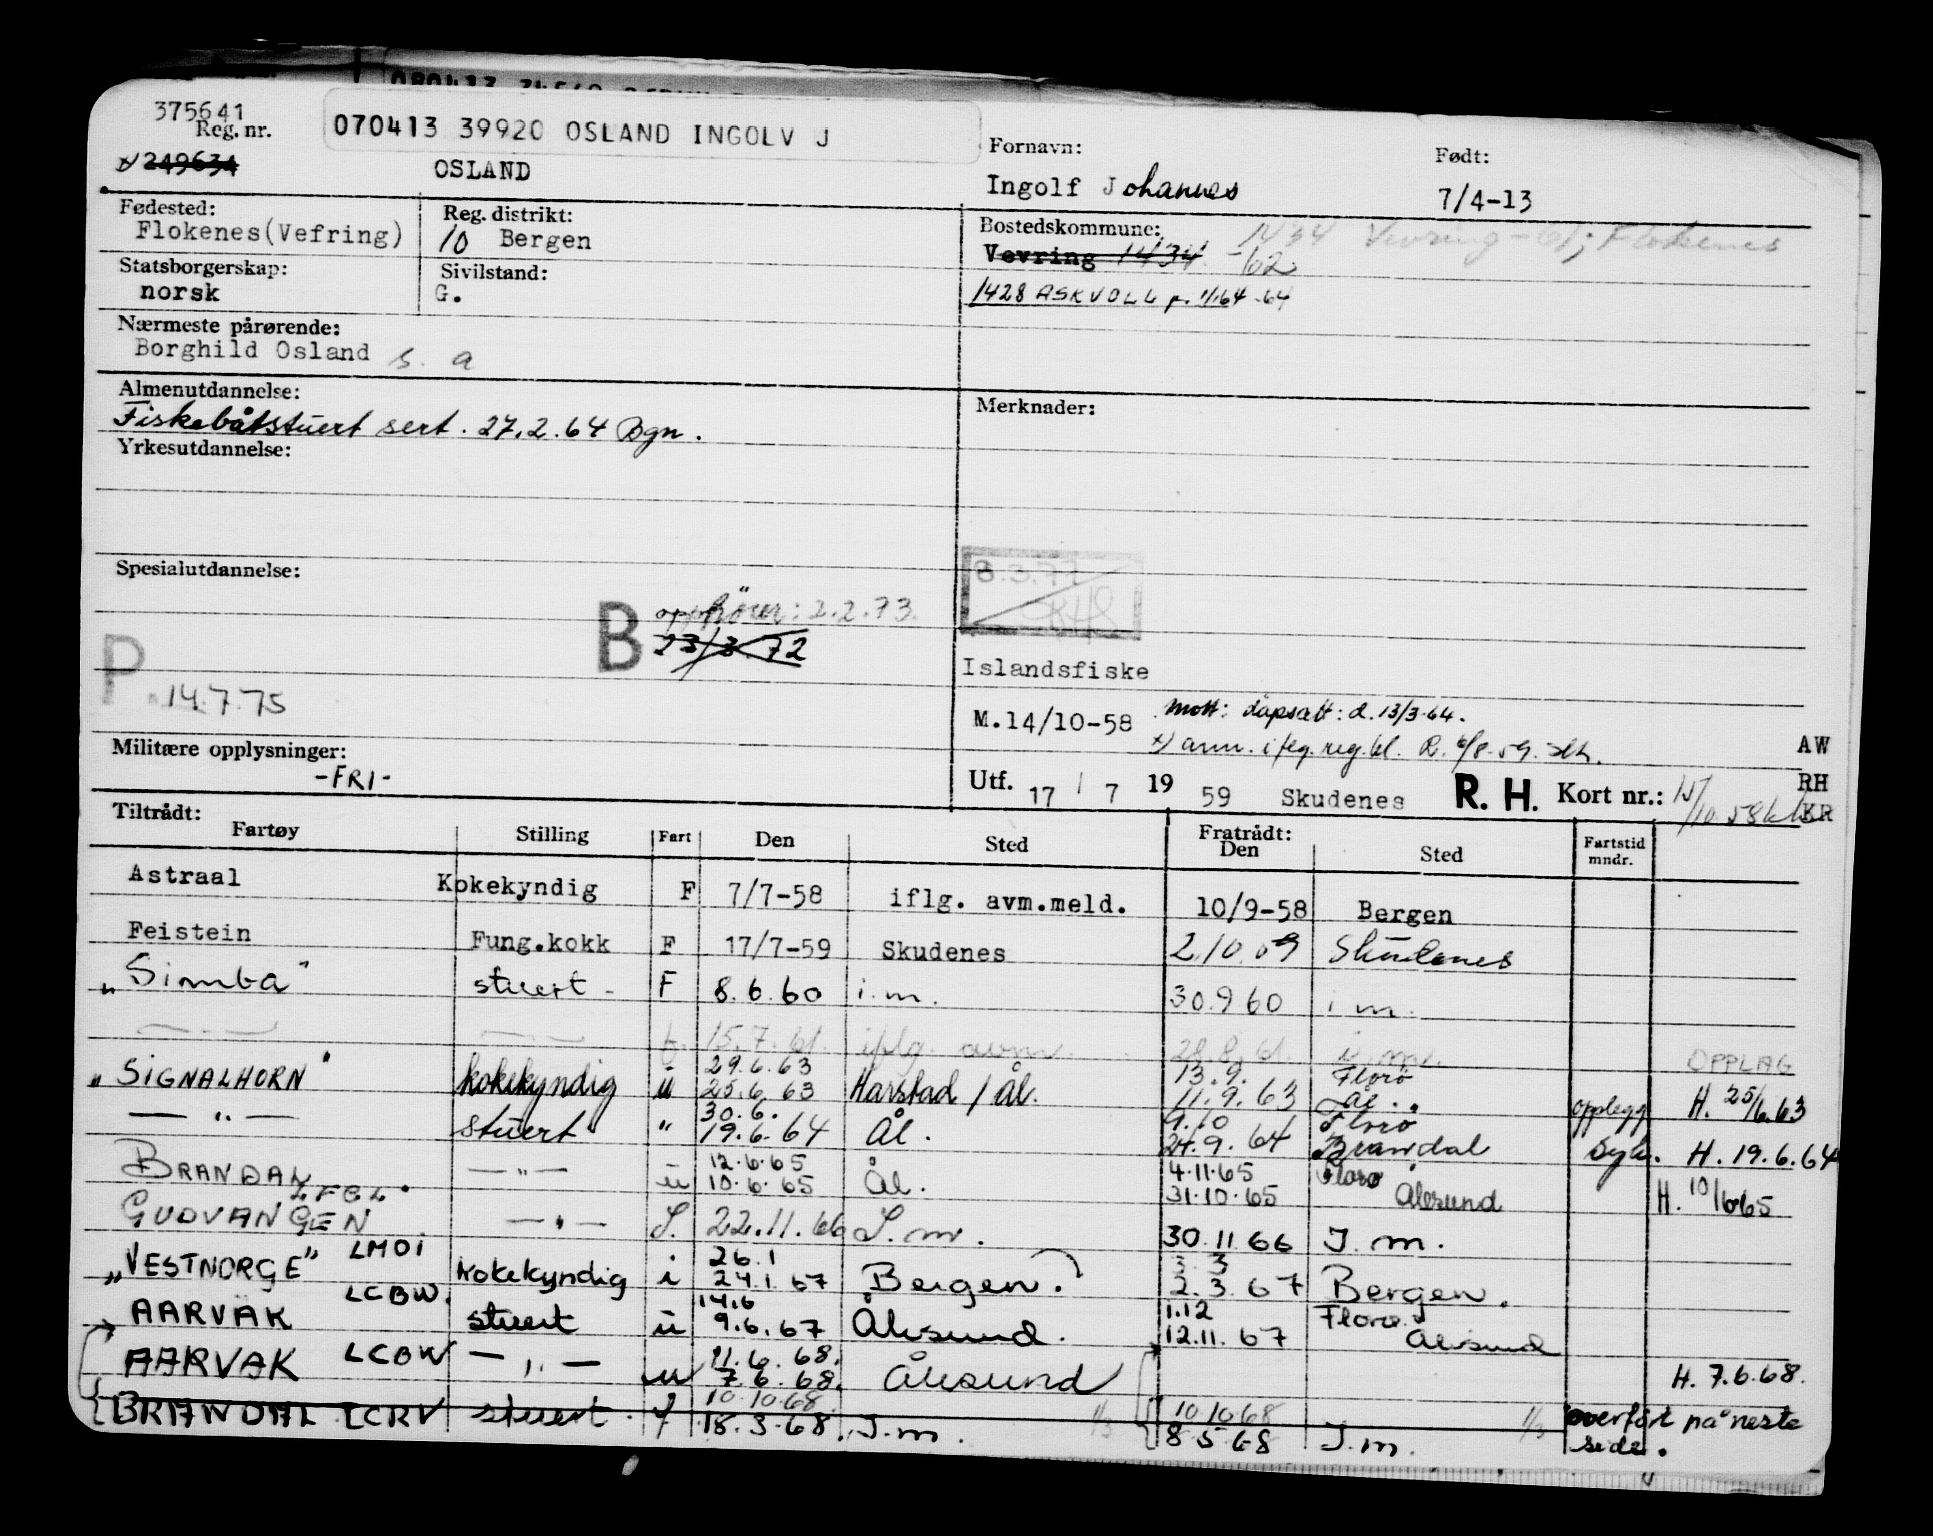 375641
Reg. nr.
070413 39920 OSLAND INGOLV J
x) 249634
OSLAND
Fornavn:
Ingolf Johannes
Født:
7/4-13
Fødested:
Flokenes(Vefring)
Reg. distrikt:
10 Bergen
Bostedskommune:
Vevring 1434 -62
1434 Vevring - 61; Flokenes
Statsborgerskap:
norsk
Sivilstand:
G.
1428 ASKVOLL p. 1/1 64 -64
Nærmeste pårørende:
Borghild Osland s. a
Almenutdannelse:
Fiskebåtstuert sert. 27.2.64 Bgn.
Merknader:
Yrkesutdannelse:
Spesialutdannelse:
8.3.77
B opphører: 2.2.73.
23/3.72
P 14.7.75
Islandsfiske
M.14/10-58 mott: dåpsatt: d. 13/3-64.
x) ann. i flg. reg. bl. R. 6/8-59.
AW
Militære opplysninger:
-FRI-
Utf. 17 / 7 19 59 Skudenes R. H. Kort nr.:
RH
KR
Tiltrådt:
Fartøy Stilling Fart Den Sted Fratrådt: Den Sted Fartstid mndr.
Astraal Kokekyndig F 7/7-58 iflg. avm.meld. 10/9-58 Bergen
Feistein Fung.kokk F 17/7-59 Skudenes 2/10 59 Skudenes
"Simba" stuert - F 8.6.60 i.m. 30.9 60 i m.
— " — — f. 15.7.61. iflg. avm. 28.8.61. i. m. OPPLAG
29.6.63 13.9. Florø
"SIGNALHORN" kokekyndig u 25.6.63 Harstad / Ål. 11.9.63 Ål. opplegg H. 25/6.63
30.6. 9.10 Florø
— " — stuert " 19.6.64 Ål. 24.9.64 Brandal Syk. H. 19.6.64
12.6.65 4.11.65 Florø
BRANDAL — " — u 10.6.65 Ål. 31.10.65 Ålesund H. 10/6 65
GUDVANGEN — " — I. 22.11.66 I. m. 30.11.66 I. m.
26.1 3.3
"VESTNORGE" LMOI kokekyndig i 24.1.67 Bergen. 2.3.67 Bergen.
14.6 1.12 Florø
AARVAK LCBW. stuert u 9.6.67 Ålesund. 12.11.67 Ålesund
11.6.68.
AARVAK LCBW — " — u 7.6.68. Ålesund H. 7.6.68.
10.10.68. 10.10.68
BRANDAL LCRV stuert. f 18.3.68 I.m. 1/3 8 5 68 I.m. 1/3 overført på neste
side.